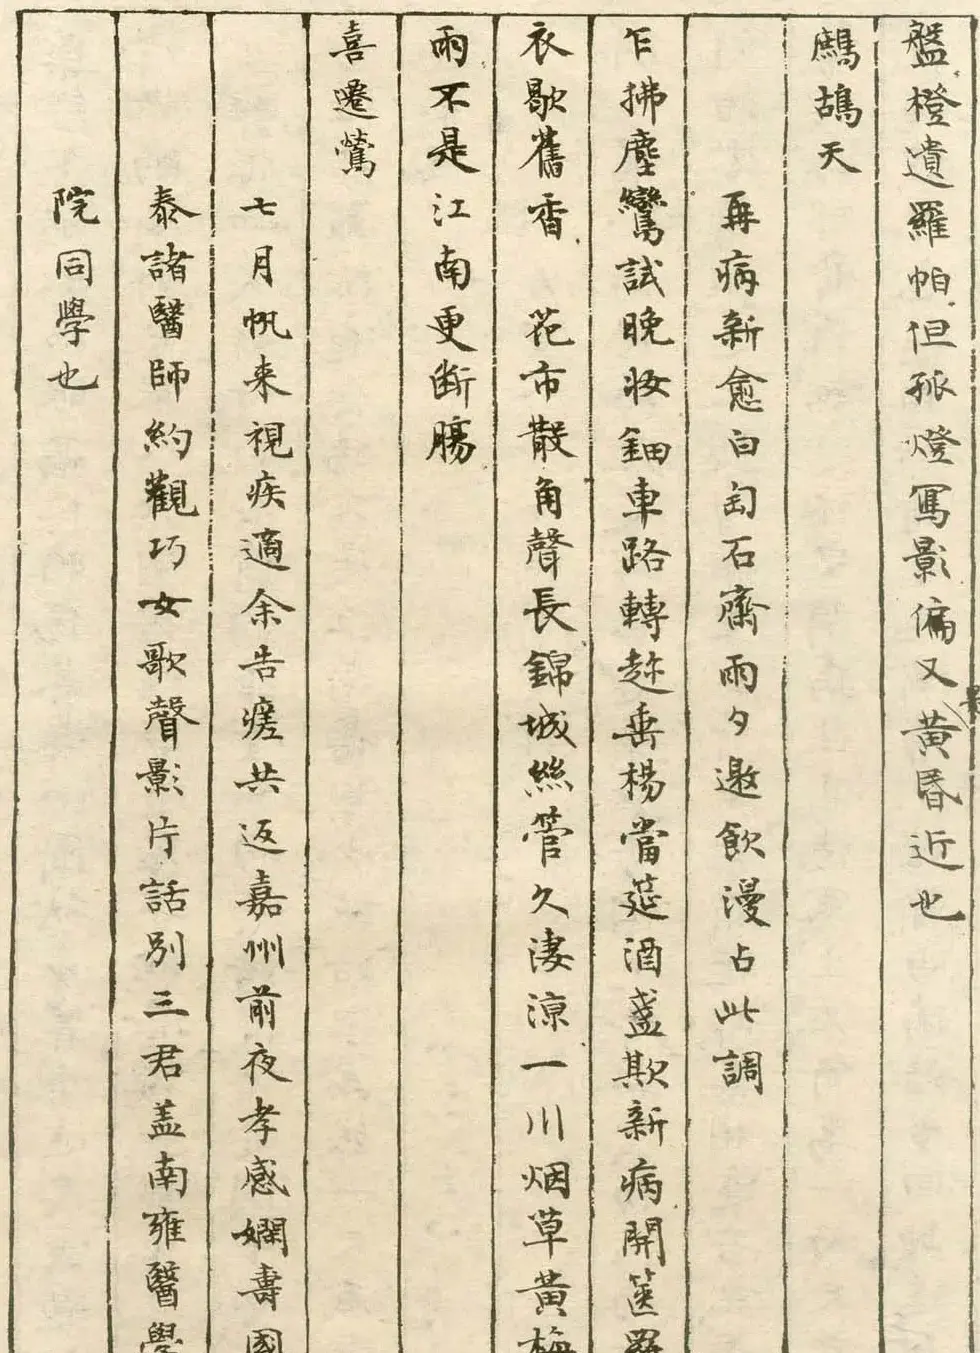 盤橙遺羅帕但孤燈寫影偏又黃昏近也
鷓鴣天
再病新愈白匋石齋雨夕邀飲漫占此調
乍拂塵鸞試晚妝鈿車路轉趂垂楊當筵酒盞欺新病開篋羅
衣歇舊香　花市散角聲長錦城絲管久淒涼一川烟草黃梅
雨不是江南更斷腸
喜遷鶯
七月帆来視疾適余告瘥共返嘉州前夜孝感嫻壽國
泰諸醫師約觀巧女歌聲影片話別三君盖南雍醫學
院同學也